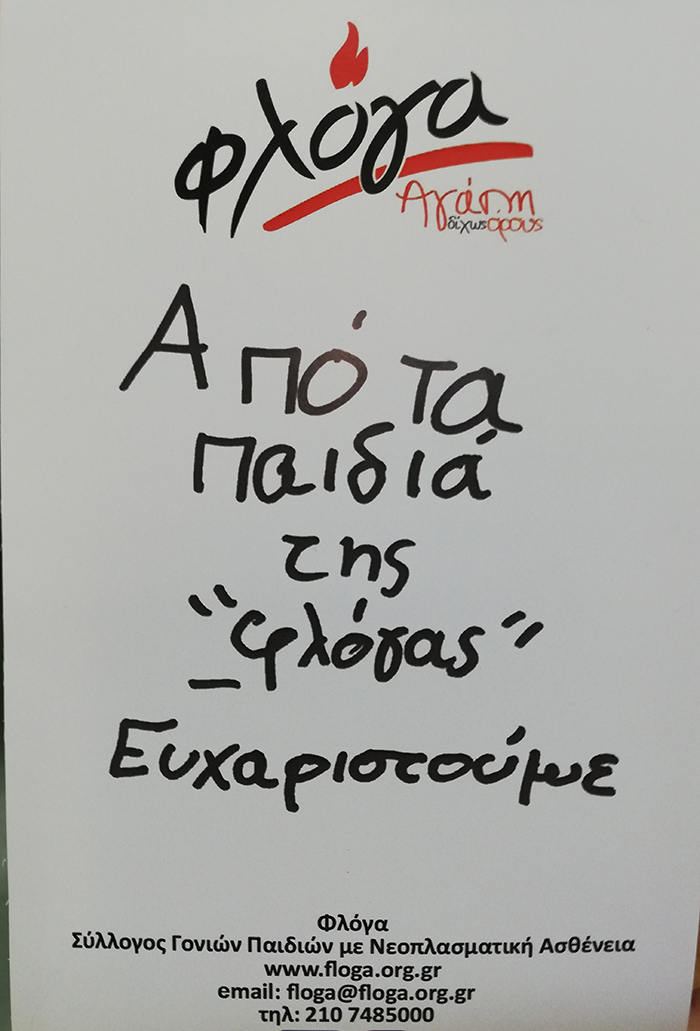 φλόγα
Αγάπη
δίχως όρους
Από τα
παιδιά
της
"φλόγας"
Ευχαριστούμε
Φλόγα
Σύλλογος Γονιών Παιδιών με Νεοπλασματική Ασθένεια
www.floga.org.gr
email: floga@floga.org.gr
τηλ: 210 7485000